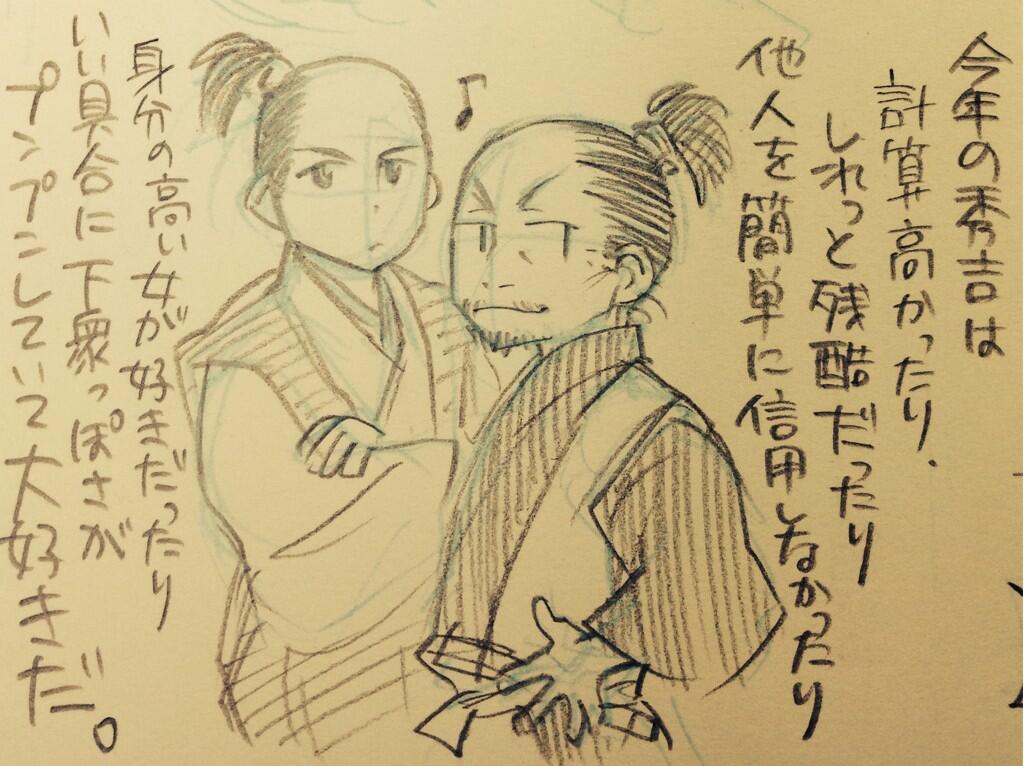 今年の秀吉は
計算高かったり、
しれっと残酷だったり
他人を簡単に信用しなかったり
身分の高い女が好きだったり
いい具合に下衆っぽさが
プンプンしていて大好きだ。